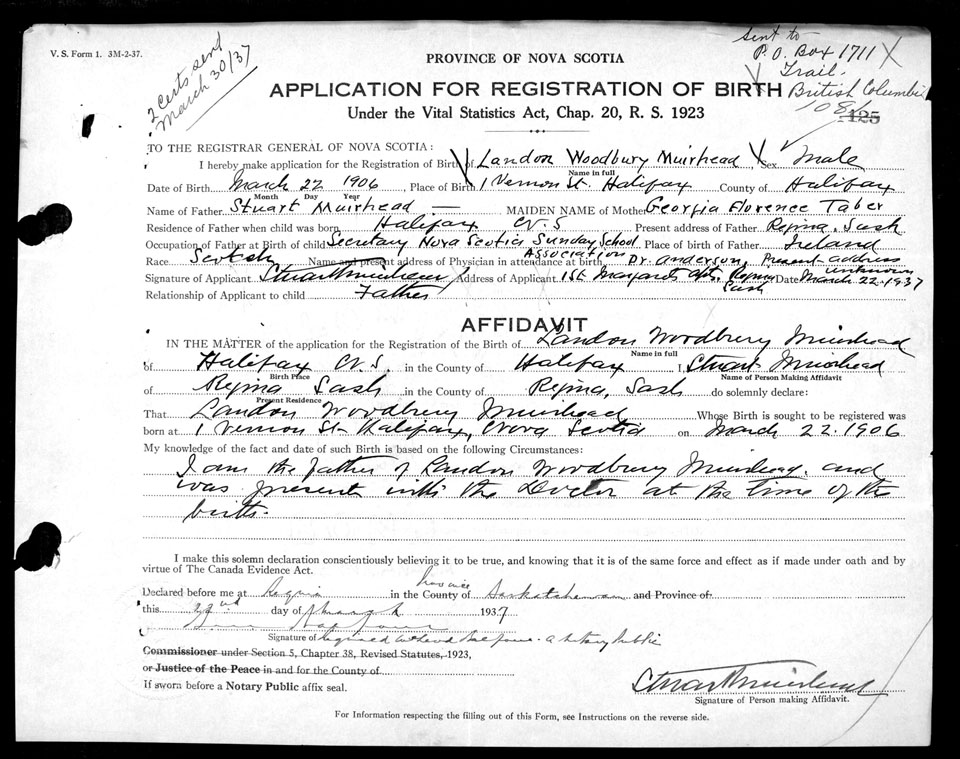 V. S. Form 1. 3M-2-37.
2 Certs send
March 30/37
Sent to
P.O. Box 1711
Trail.
British Columbia
PROVINCE OF NOVA SCOTIA
APPLICATION FOR REGISTRATION OF BIRTH
Under the Vital Statistics Act, Chap. 20, R. S. 1923
108
125
TO THE REGISTRAR GENERAL OF NOVA SCOTIA:
I hereby make application for the Registration of Birth of Landon Woodbury Muirhead Sex Male
Name in full
Date of Birth March 22 1906, Place of Birth 1 Vernon St. Halifax County of Halifax
Month Day Year
Name of Father Stuart Muirhead — MAIDEN NAME of Mother Georgia Florence Taber
Residence of Father when child was born Halifax N.S Present address of Father Regina, Sask
Occupation of Father at Birth of child Secretary Nova Scotia Sunday School Place of birth of Father Ireland
Association
Race Scotch Name and present address of Physician in attendance at birth Dr. Anderson, Present address
unknown
Signature of Applicant Stuart Muirhead Address of Applicant 1 St. Margarets Apts, Regina Date March 22.1937
Sask
Relationship of Applicant to child Father
AFFIDAVIT
IN THE MATTER of the application for the Registration of the Birth of Landon Woodbury Muirhead
Name in full
of Halifax N.S. in the County of Halifax I, Stuart Muirhead
Birth Place Name of Person Making Affidavit
of Regina Sask in the County of Regina, Sask do solemnly declare:
Present Residence
That Landon Woodbury Muirhead Whose Birth is sought to be registered was
born at 1 Vernon St- Halifax, Nova Scotia on March 22.1906
My knowledge of the fact and date of such Birth is based on the following Circumstances:
I am the father of Landon Woodbury Muirhead. and
was present with the Doctor at the time of the
birth.
I make this solemn declaration conscientiously believing it to be true, and knowing that it is of the same force and effect as if made under oath and by
virtue of The Canada Evidence Act.
Province
Declared before me at Regina in the County of Saskatchewan and Province of
this 22nd day of March 1937
Signature of a Notary Public
Commissioner under Section 5, Chapter 38, Revised Statutes, 1923,
or Justice of the Peace in and for the County of
If sworn before a Notary Public affix seal.
Stuart Muirhead
Signature of Person making Affidavit.
For Information respecting the filling out of this Form, see Instructions on the reverse side.